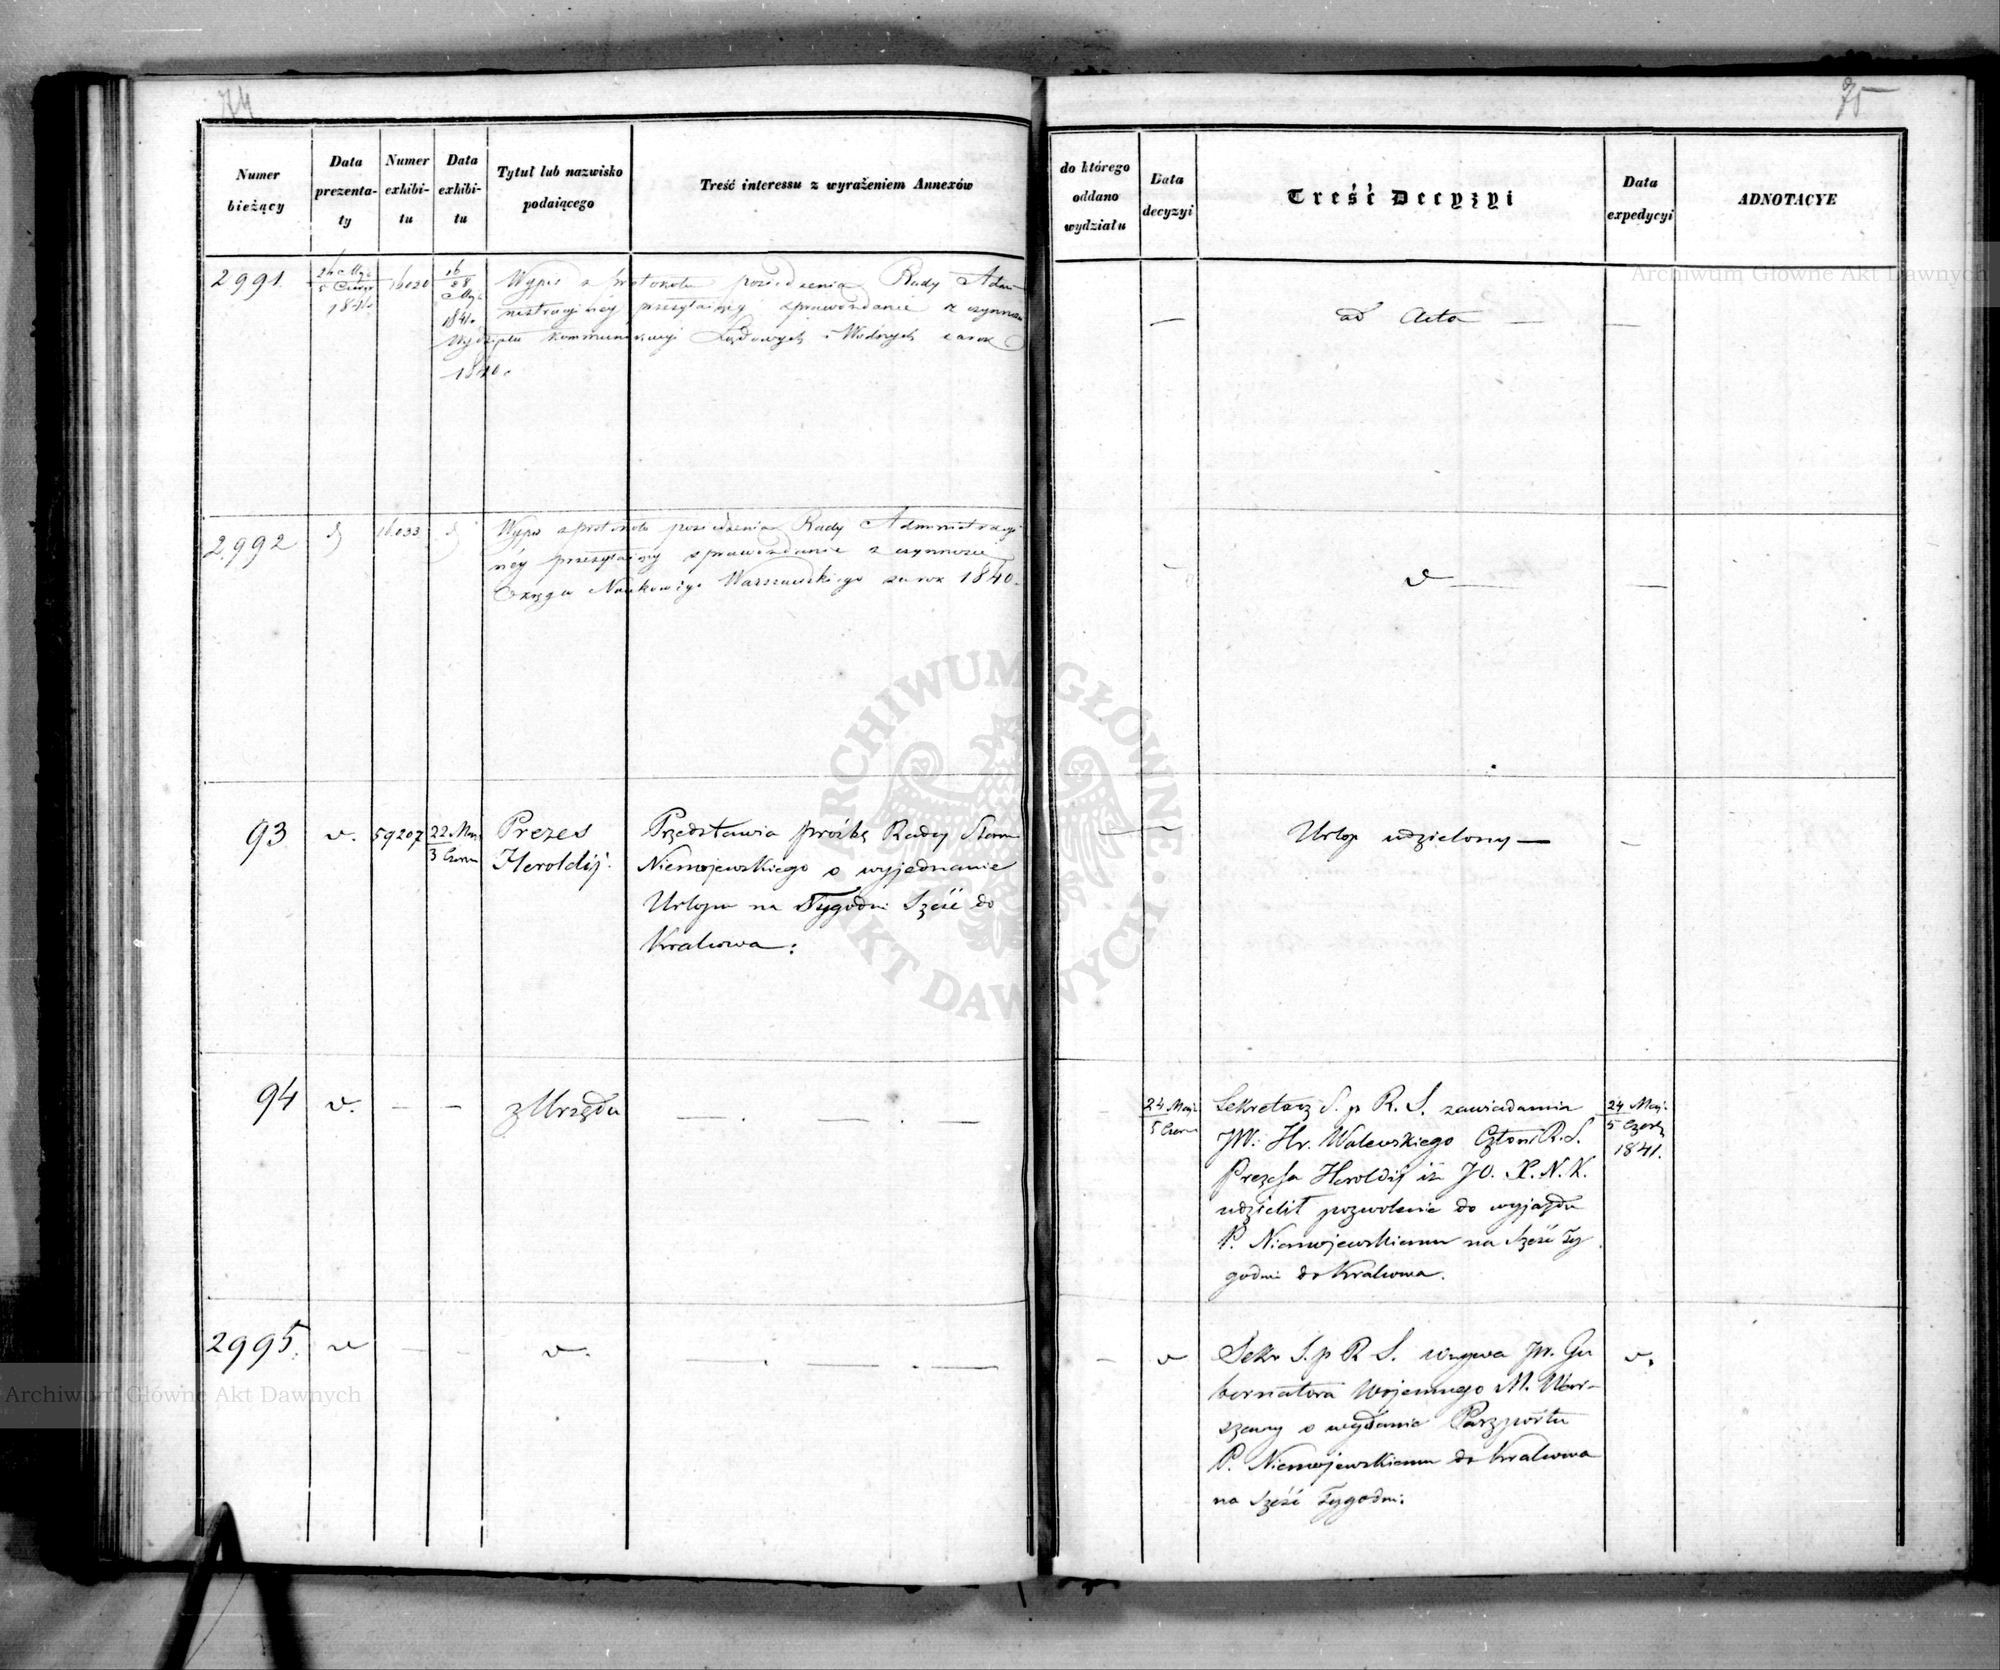 74
75
Numer bieżący
Data prezenta-ty
Numer exhibi-tu
Data exhibi-tu
Tytuł lub nazwisko podaiącego
Treść interessu z wyrażeniem Annexów
do którego oddano wydziału
Data decyzyi
Treść Decyzyi
Data expedycyi
ADNOTACYE
2991.
5 Czerw
1841.
16020
16
28
1841.
Wypis z protokołu posiedzenia Rady Admi
nistracyjnéj przesyłającéj sprawozdanie z czynności
Wydziału Kommunikacyi Lądowych i Wodnych za rok
1840.
—
ad Acta —
—
2992
d
16.033
d
Wypis z protokołu posiedzenia Rady Administracyj
néj przesyłającéj sprawozdanie z czynności
Okręgu Naukowego Warszawskiego za rok 1840.
—
v —
—
93
v.
59207
22 Maj
3 Czerw
Prezes
Heroldij.
Przedstawia prośbę Radcy Stanu
Niemojewskiego o wyjednanie
Urlopu na Tygodni Sześć do
Krakowa.
—
Urlop udzielony —
—
94
v.
—
—
z Urzędu
— . — . —
24 Maj
5 Czerw
Sekretarz S. p R. S. zawiadamia
JW. Hr. Walewskiego Człon. R. S.
Prezesa Heroldij iż JO. X. N. K.
udzielił pozwolenie do wyjazdu
P. Niemojewskiemu na Sześć Ty
godni do Krakowa.
24 Maj
5 Czerw
1841.
2995.
v
—
—
v.
— . — . —
—
v
Sekr S. p R S. wzywa JW. Gu
bernatora Wojennego M. War-
szawy o wydanie Paszportu
P. Niemojewskiemu do Krakowa
na Sześć Tygodni.
v.
ARCHIWUM GŁÓWNE AKT DAWNYCH
Archiwum Główne Akt Dawnych
Archiwum Główne Akt Dawnych